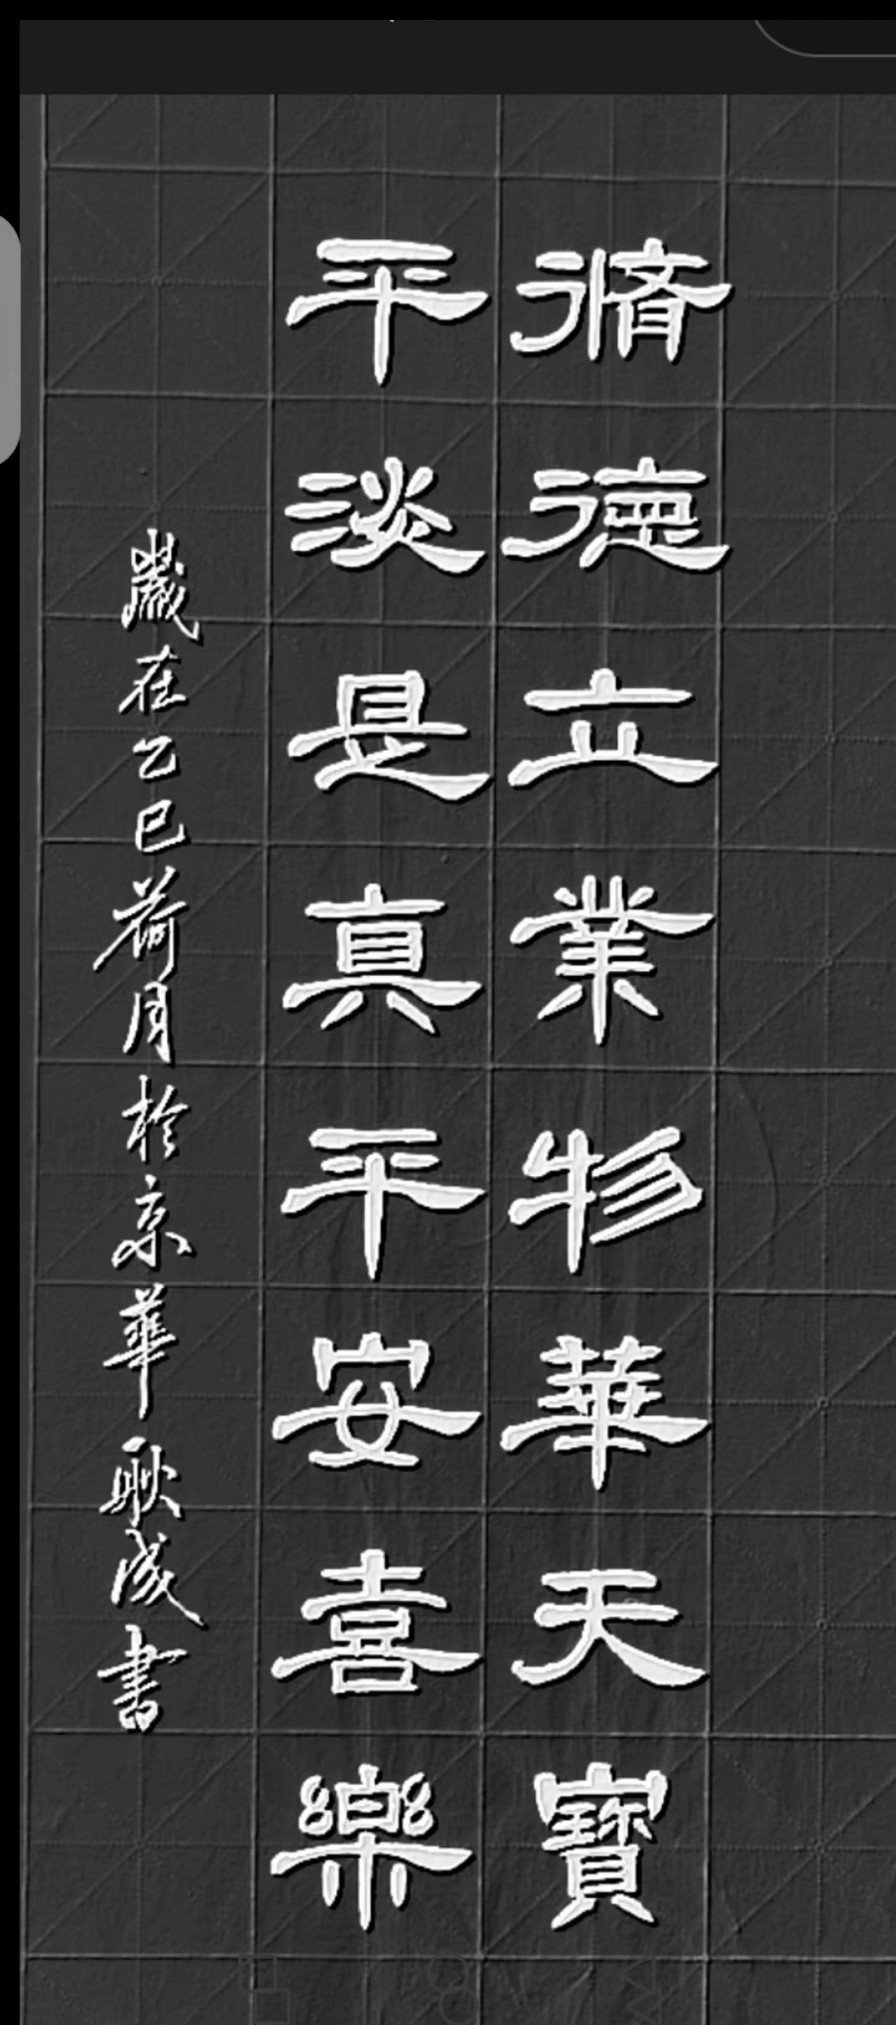 脩德立業物華天寶
平淡是真平安喜樂
歲在乙巳荷月於京華耿成書